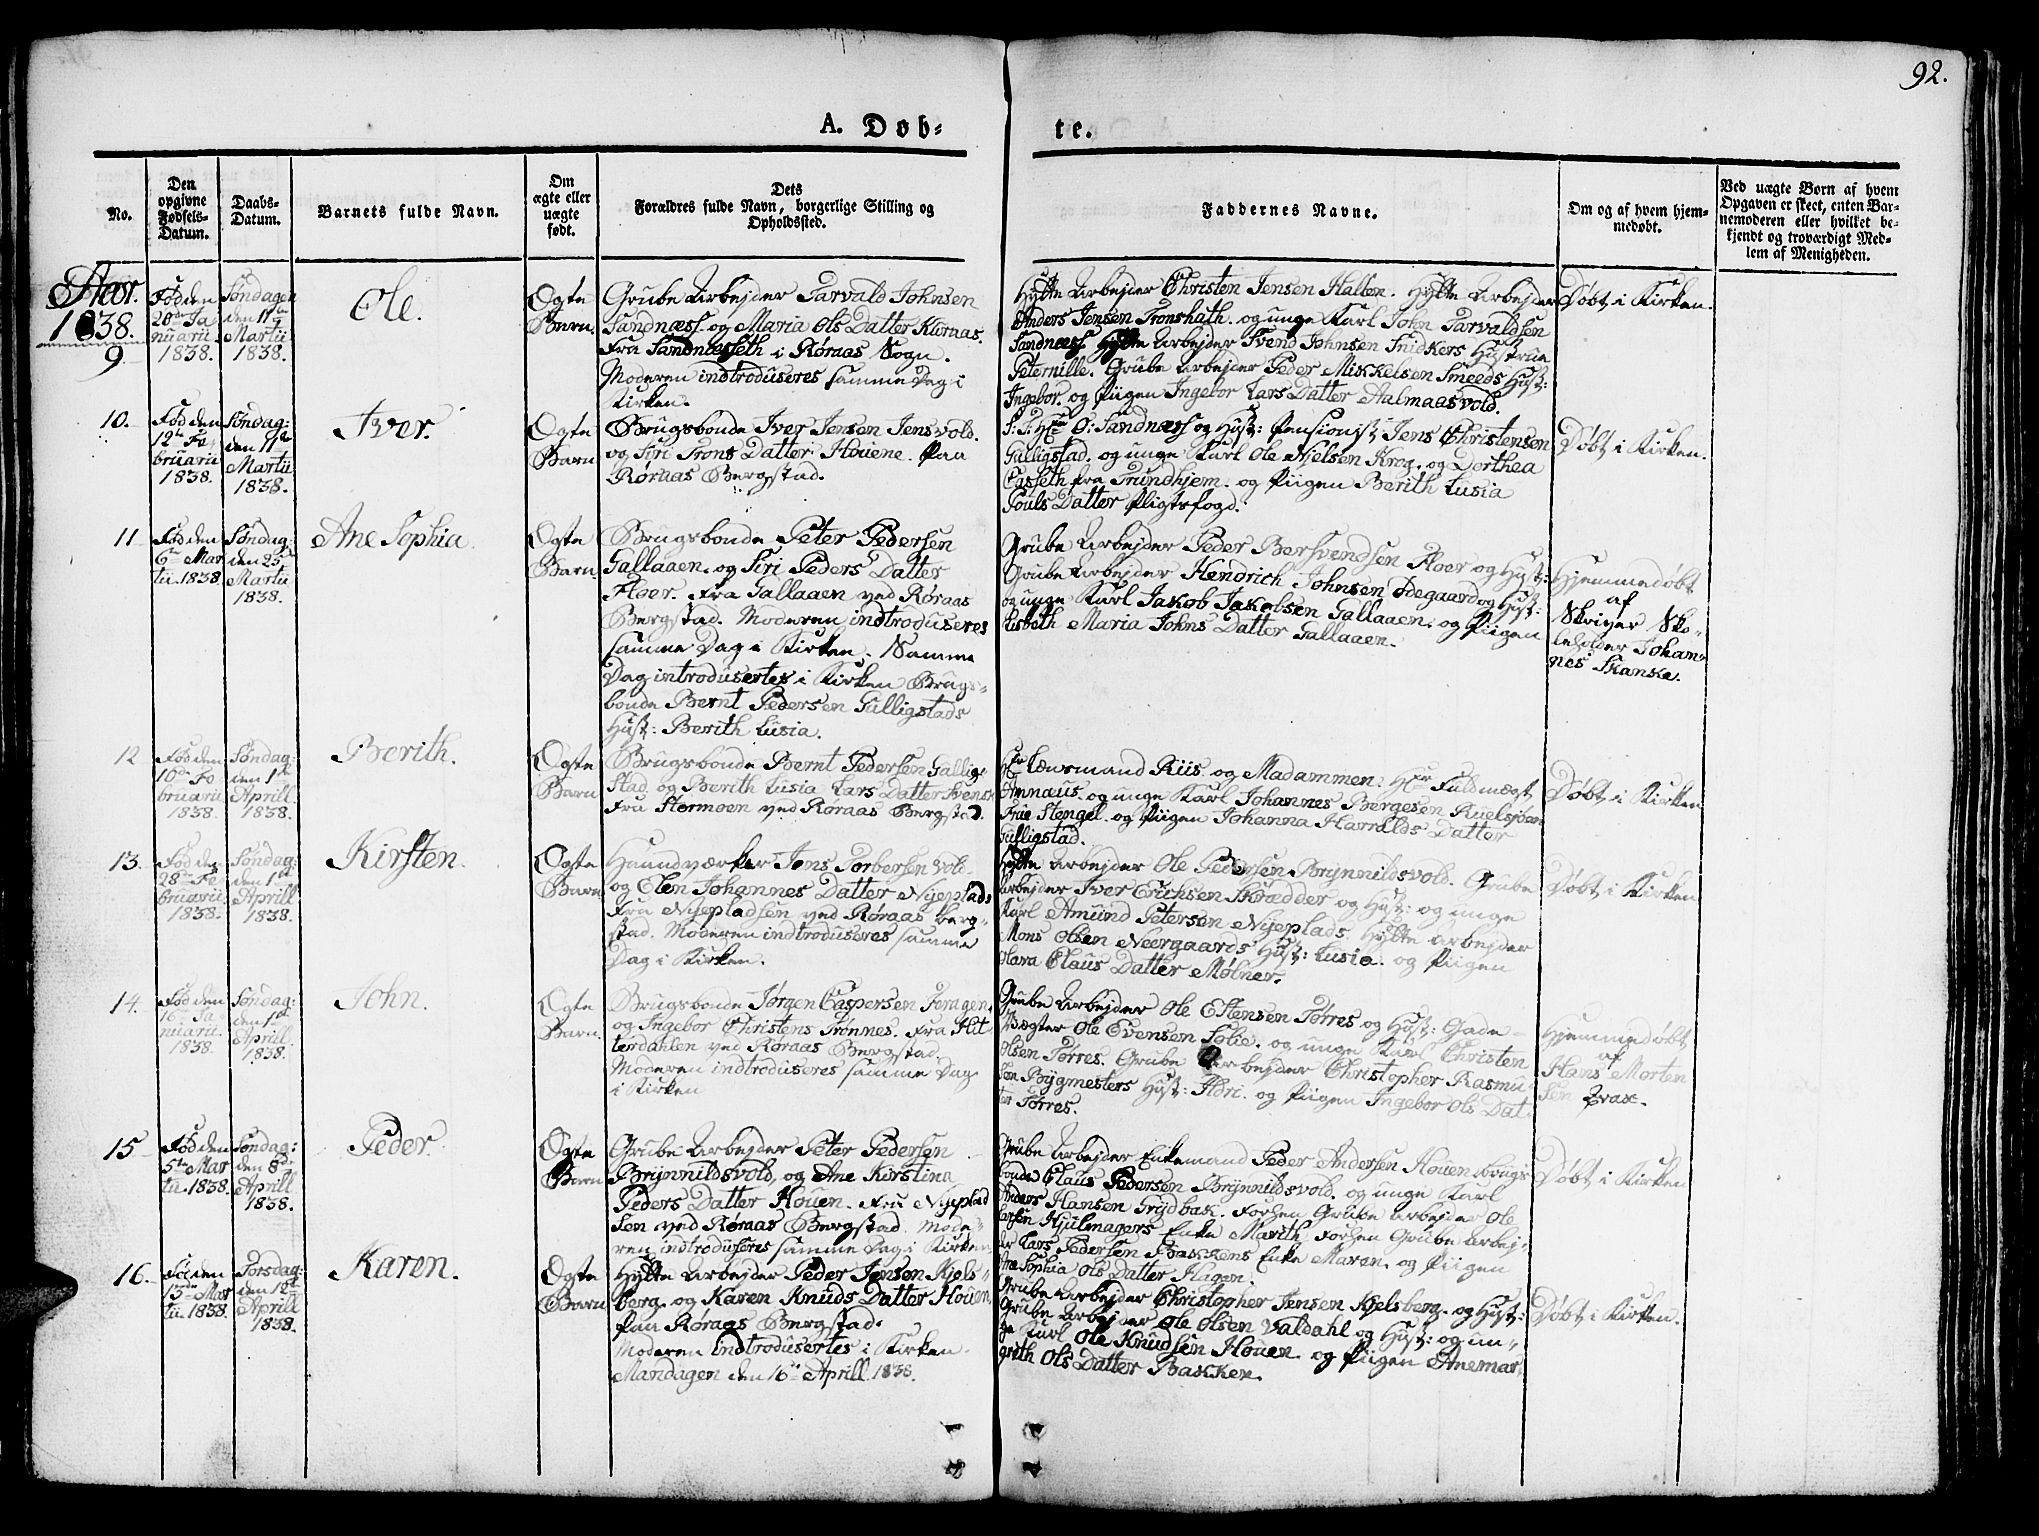 92.
A. Døb=
te.
No.
Den
opgivne
Fødsels-
Datum.
Daabs-
Datum.
Barnets fulde Navn.
Om
ægte eller
uægte
født.
Dets
Forældres fulde Navn, borgerlige Stilling og
Opholdssted.
Faddernes Navne.
Om og af hvem hjem-
medøbt.
Ved uægte Børn af hvem
Opgaven er skeet, enten Bar-
nemoderen eller hvilket be-
kjendt og troværdigt Med-
lem af Menigheden.
Aar.
1838.
9.
Fød den
20de Ja
nuarii
1838.
Søndagen
den 11te
Martii
1838.
Ole.
Ægte
Barn.
Grube Arbejder Tarvald Johnsen
Sandnæss og Maria Ols Datter Kuraas.
Fra Sandnæsseth i Røraas Sogn.
Moderen indtroduseres samme Dag i
Kirken.
Hytte Arbejder Christen Jensen Halten. Hytte Arbejder
Anders Jensen Tronshath. og unge Karl John Tarvaldsen
Sandnæss. Hytte Arbejder Svend Johnsen Snidkers Hustrue
Peternille. Grube Arbejder Peder Mikkelsen Smeeds Hust:
Ingebor. og Piigen Ingebor Lars Datter Aalmaasvold.
Døbt i Kirken.
10.
Fød den
12te Fe
bruarii
1838.
Søndag:
den 11te
Martii
1838.
Iver.
Ægte
Barn
Brugsbonde Iver Jensen Jensvold.
og Siri Trons Datter Houene. Paa
Røraas Bergstad.
S: T: Hr O: Sandnæss og Hust: Pensionist Jens Christensen
Gulligstad. og unge Karl Ole Njelsen Krog. og Dorthea
Casseth fra Trundhjem. og Piigen Berith Lusia
Pouls Datter Pligtsfogd.
Døbt i Kirken.
11
Fød den
6te Mar
tii. 1838
Søndag:
den 25de
Martii
1838.
Ane Sophia.
Ægte
Barn.
Brugsbonde Peter Pedersen
Gallaaen. og Siri Peders Datter
Floer. Fra Gallaaen ved Røraas
Bergstad. Moderen indtroduseres
samme Dag i Kirken. Samme
Dag introdusertes i Kirken Brugs=
bonde Bernt Pedersen Gulligstads
Hust: Berith Lusia.
Grube Arbejder Peder Bersvendsen Floer og Hust:
Grube Arbejder Hendrich Johnsen Ødegaard og Hust:
og unge Karl Jakob Jakobsen Gallaaen. og Piigen
Lisbeth Maria Johns Datter Gallaaen.
Hjemmedøbt
af
Skriver Sko-
leholder Johan-
nes Skanke.
12
Fød den
10de Fe
bruarii
1838.
Søndag:
den 1ste
Aprill
1838.
Berith.
Ægte
Barn
Brugsbonde Bernt Pedersen Gullig-
stad. og Berith Lusia Lars Datter Svensk
Fra Stormoen ved Røraas Bergstad.
Hr Lænsmand Riis og Madammen. Hr Fuldmægt.
Annæus. og unge Karl Johannes Bergesen Ruelsjøen
Frue Stengel. og Piigen Johanna Harralds Datter
Gulligstad.
Døbt i Kirken
13.
Fød den
28de Fe
bruarii
1838.
Søndag:
den 1ste
Aprill
1838.
Kirsten.
Ægte
Barn
Haandværker Jens Torbersen Vold.
og Elen Johannes Datter Nyeplads
Fra Nyepladsen ved Røraas Berg=
stad. Moderen indtroduseres samme
Dag i Kirken.
Hytte Arbejder Ole Pedersen Brynnildsvold. Grube
Arbejder Iver Erichsen Skrædder og Hust: og unge
Karl Amund Petersen Nyeplads. Hytte Arbejder
Mons Olsen Neergaards Hust: Lusia. og Piigen
Olava Claus Datter Mølner.
Døbt i Kirken
14.
Fød den
16de Ja
nuarii.
1838.
Søndag:
den 1ste
Aprill
1838.
John.
Ægte
Barn.
Brugsbonde Jørgen Caspersen Feragen.
og Ingebor Christens Trønnes. fra Hit
terdahlen ved Røraas Bergstad.
Moderen indtroduseres samme Dag
i Kirken
Grube Arbejder Ole Estensen Tørres og Hust: Gade-
Vægter Ole Evensen Solie. og unge Karl Christen
Olsen Tørres. Grube Arbejder Christopher Rasmu
sen Bygmesters Hust: Ildri. og Piigen Ingebor Ols Dat
ter Tørres.
Hjemmedøbt
af
Hans Morten
sen Brax.
15
Fød den
5te Mar
tii. 1838.
Søndag:
den 8de
Aprill
1838.
Peder.
Ægte
Barn
Grube Arbejder Peter Pedersen
Brynnildsvold, og Ane Kirstina
Peders Datter Houen. Fra Nyeplad
sen ved Røraas Bergstad. Mode-
ren indtroduseres samme Dag i Kirken.
Grube Arbejder Enkemand Peder Andersen Houen. brugs
bonde Claus Pedersen Brynnildsvold. og unge Karl
Anders Hansen Grydbak. Forhen Grube Arbejder Ole
Larsen Hjulmagers Enke Marith. Forhen Grube Arbej-
der Lars Pedersen Bakkens Enke Maren. og Piigen
Ane Sophia Ols Datter Hagen.
Døbt i Kirken
16.
Fød den
13de Mar
tii. 1838.
Torsdag:
den 12te
Aprill
1838.
Karen.
Ægte
Barn
Hytte Arbejder Peder Jensen Kjels-
berg. og Karen Knuds Datter Houen,
paa Røraas Bergstad.
Moderen Indtrodusertes i Kirken
Mandagen den 16de Aprill 1838.
Grube Arbejder Christopher Jensen Kjelsberg. og Hust:
Grube Arbejder Ole Olsen Valdahl og Hust: og un-
ge Karl Ole Knudsen Houen. og Piigen Anemar-
greth Ols Datter Bakken.
Døbt i Kirken.